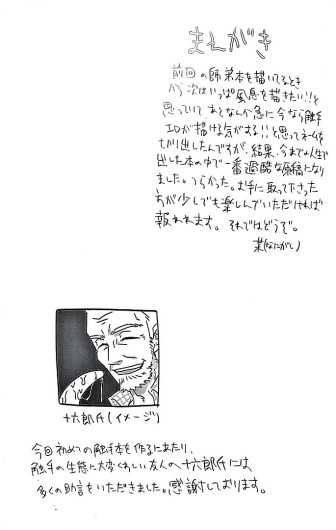 まえがき
前回の師弟本を描いてるとき
から次はいっぱい風息を描きたい!!と
思っていて、あとなんか急に今なら触手
エロが描ける気がする!!と思ってネームを
切り出したんですが、結果、今までの人生で
出した本の中で一番過酷な原稿になり
ました。つらかった。お手に取って下さった
方が少しでも楽しんでいただければ
報われます。それではどうぞ。
某(なにがし)
十六郎氏(イメージ)
今回初めての触手本を作るにあたり、
触手の生態に大変くわしい友人の十六郎氏には
多くの助言をいただきました。感謝しております。